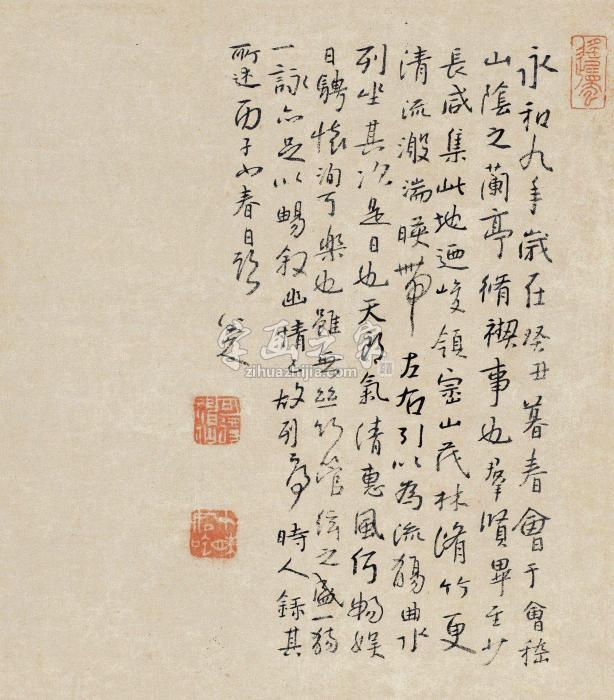 永和九年歲在癸丑暮春會于會稽
山陰之蘭亭脩禊事也羣賢畢至少
長咸集此地迺峻領崇山茂林脩竹更
清流激湍暎帶左右引以為流觴曲水
列坐其次是日也天朗氣清惠風何暢娛
日騁懷洵可樂也雖無絲竹管絃之盛一觴
一詠亦足以暢敘幽情已故列序時人錄其
所述丙子小春日臨
八大山人
字画之家
zihuazhijia.com